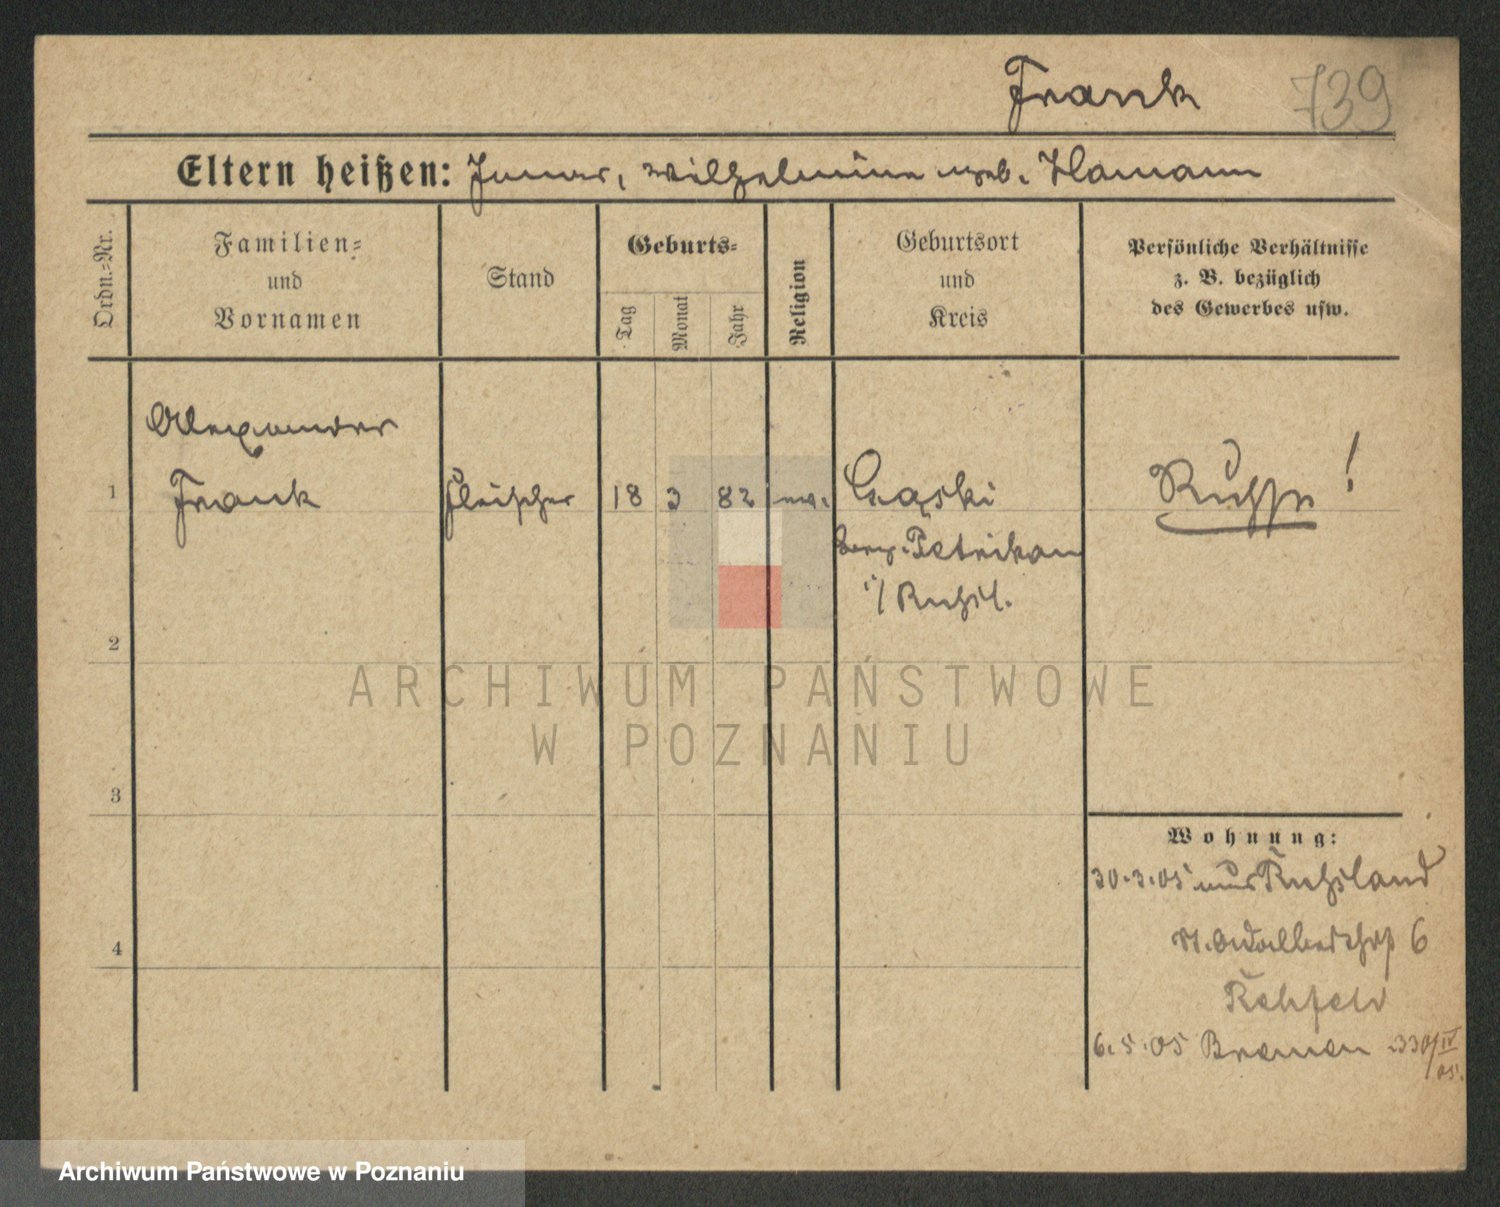 Frank 739
Eltern heißen: Wilhelmine geb. Hamann
Ordn.-Nr.
Familien-
und
Vornamen
Stand
Geburts-
Tag
Monat
Jahr
Religion
Geburtsort
und
Kreis
Persönliche Verhältnisse
z. B. bezüglich
des Gewerbes usw.
Alexander
1 Frank Fleischer 18 3 82 ev. Russe!
Petrikau
i/ Rußl.
2
ARCHIWUM PAŃSTWOWE
W POZNANIU
3
Wohnung:
30.3.05 aus Rußland
St. Adalbertstr 6
Rehfeld
4
6.5.05 Bremen 330/IV
05.
Archiwum Państwowe w Poznaniu